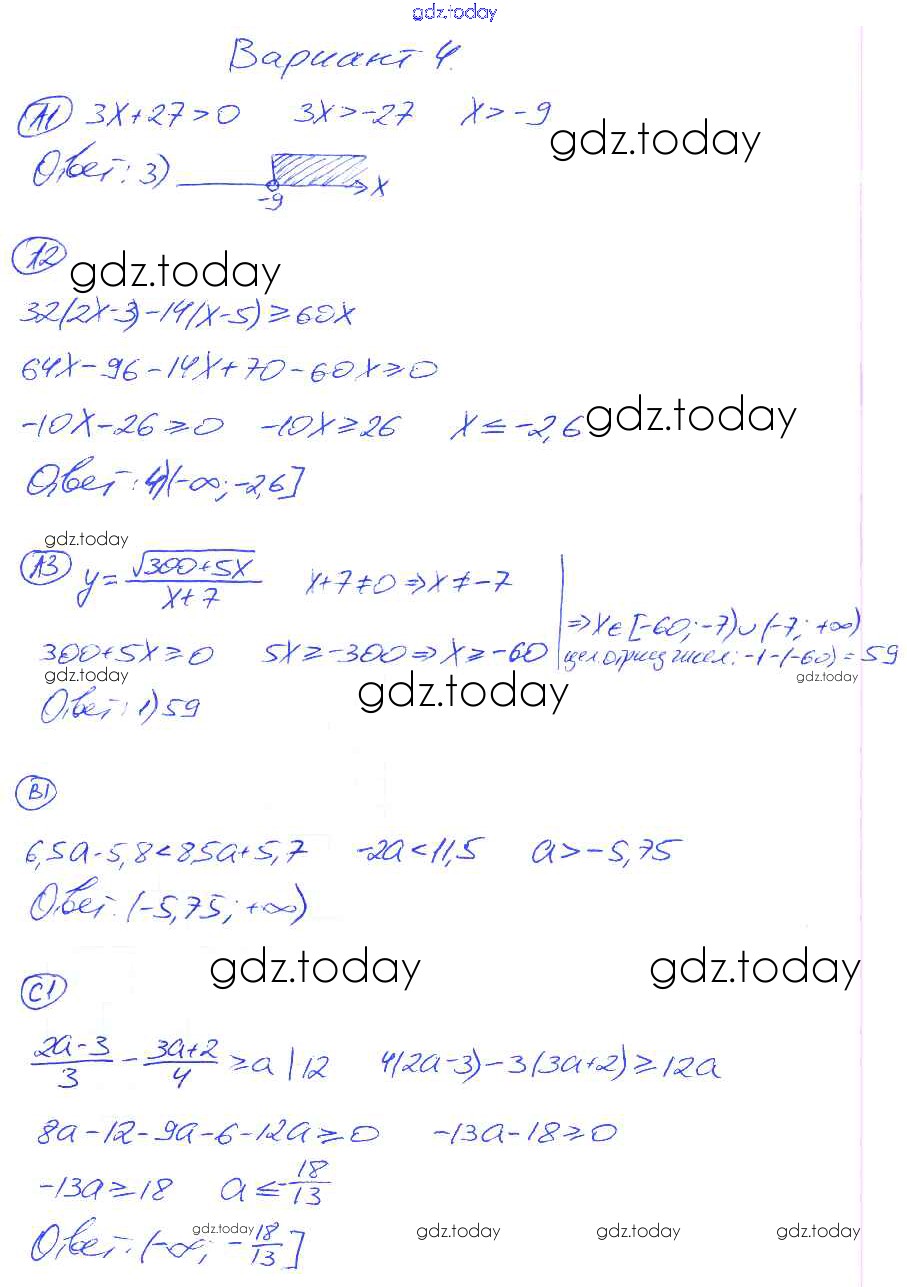 gdz.today
Вариант 4.
А1 3x+27>0 3x>-27 x>-9
gdz.today
Ответ: 3)
-9 x
А2
gdz.today
32(2x-3)-14(x-5)≥60x
64x-96-14x+70-60x≥0
-10x-26≥0 -10x≥26 x≤-2,6
gdz.today
Ответ: 4)(-∞;-2,6]
gdz.today
А3 y=√(300+5x)/(x+7) x+7≠0⇒x≠-7
⇒x∈[-60;-7)∪(-7;+∞)
300+5x≥0 5x≥-300⇒x≥-60
цел. отриц чисел: -1-(-60)=59
gdz.today gdz.today gdz.today
Ответ: 1)59
В1
6,5a-5,8<8,5a+5,7 -2a<11,5 a>-5,75
Ответ: (-5,75;+∞)
gdz.today gdz.today
С1
(2a-3)/3-(3a+2)/4≥a|12 4(2a-3)-3(3a+2)≥12a
8a-12-9a-6-12a≥0 -13a-18≥0
-13a≥18 a≤-18/13
Ответ: (-∞;-18/13]
gdz.today gdz.today gdz.today gdz.today